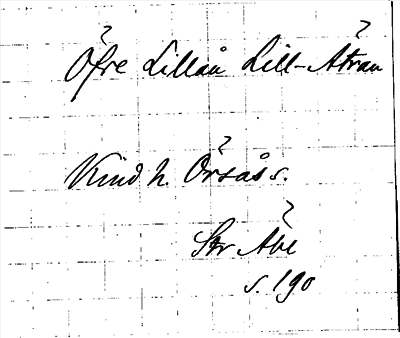 Öfre Lillån Lill-Ätran
Kind h. Örsås s.
Str Åbe
s. 190